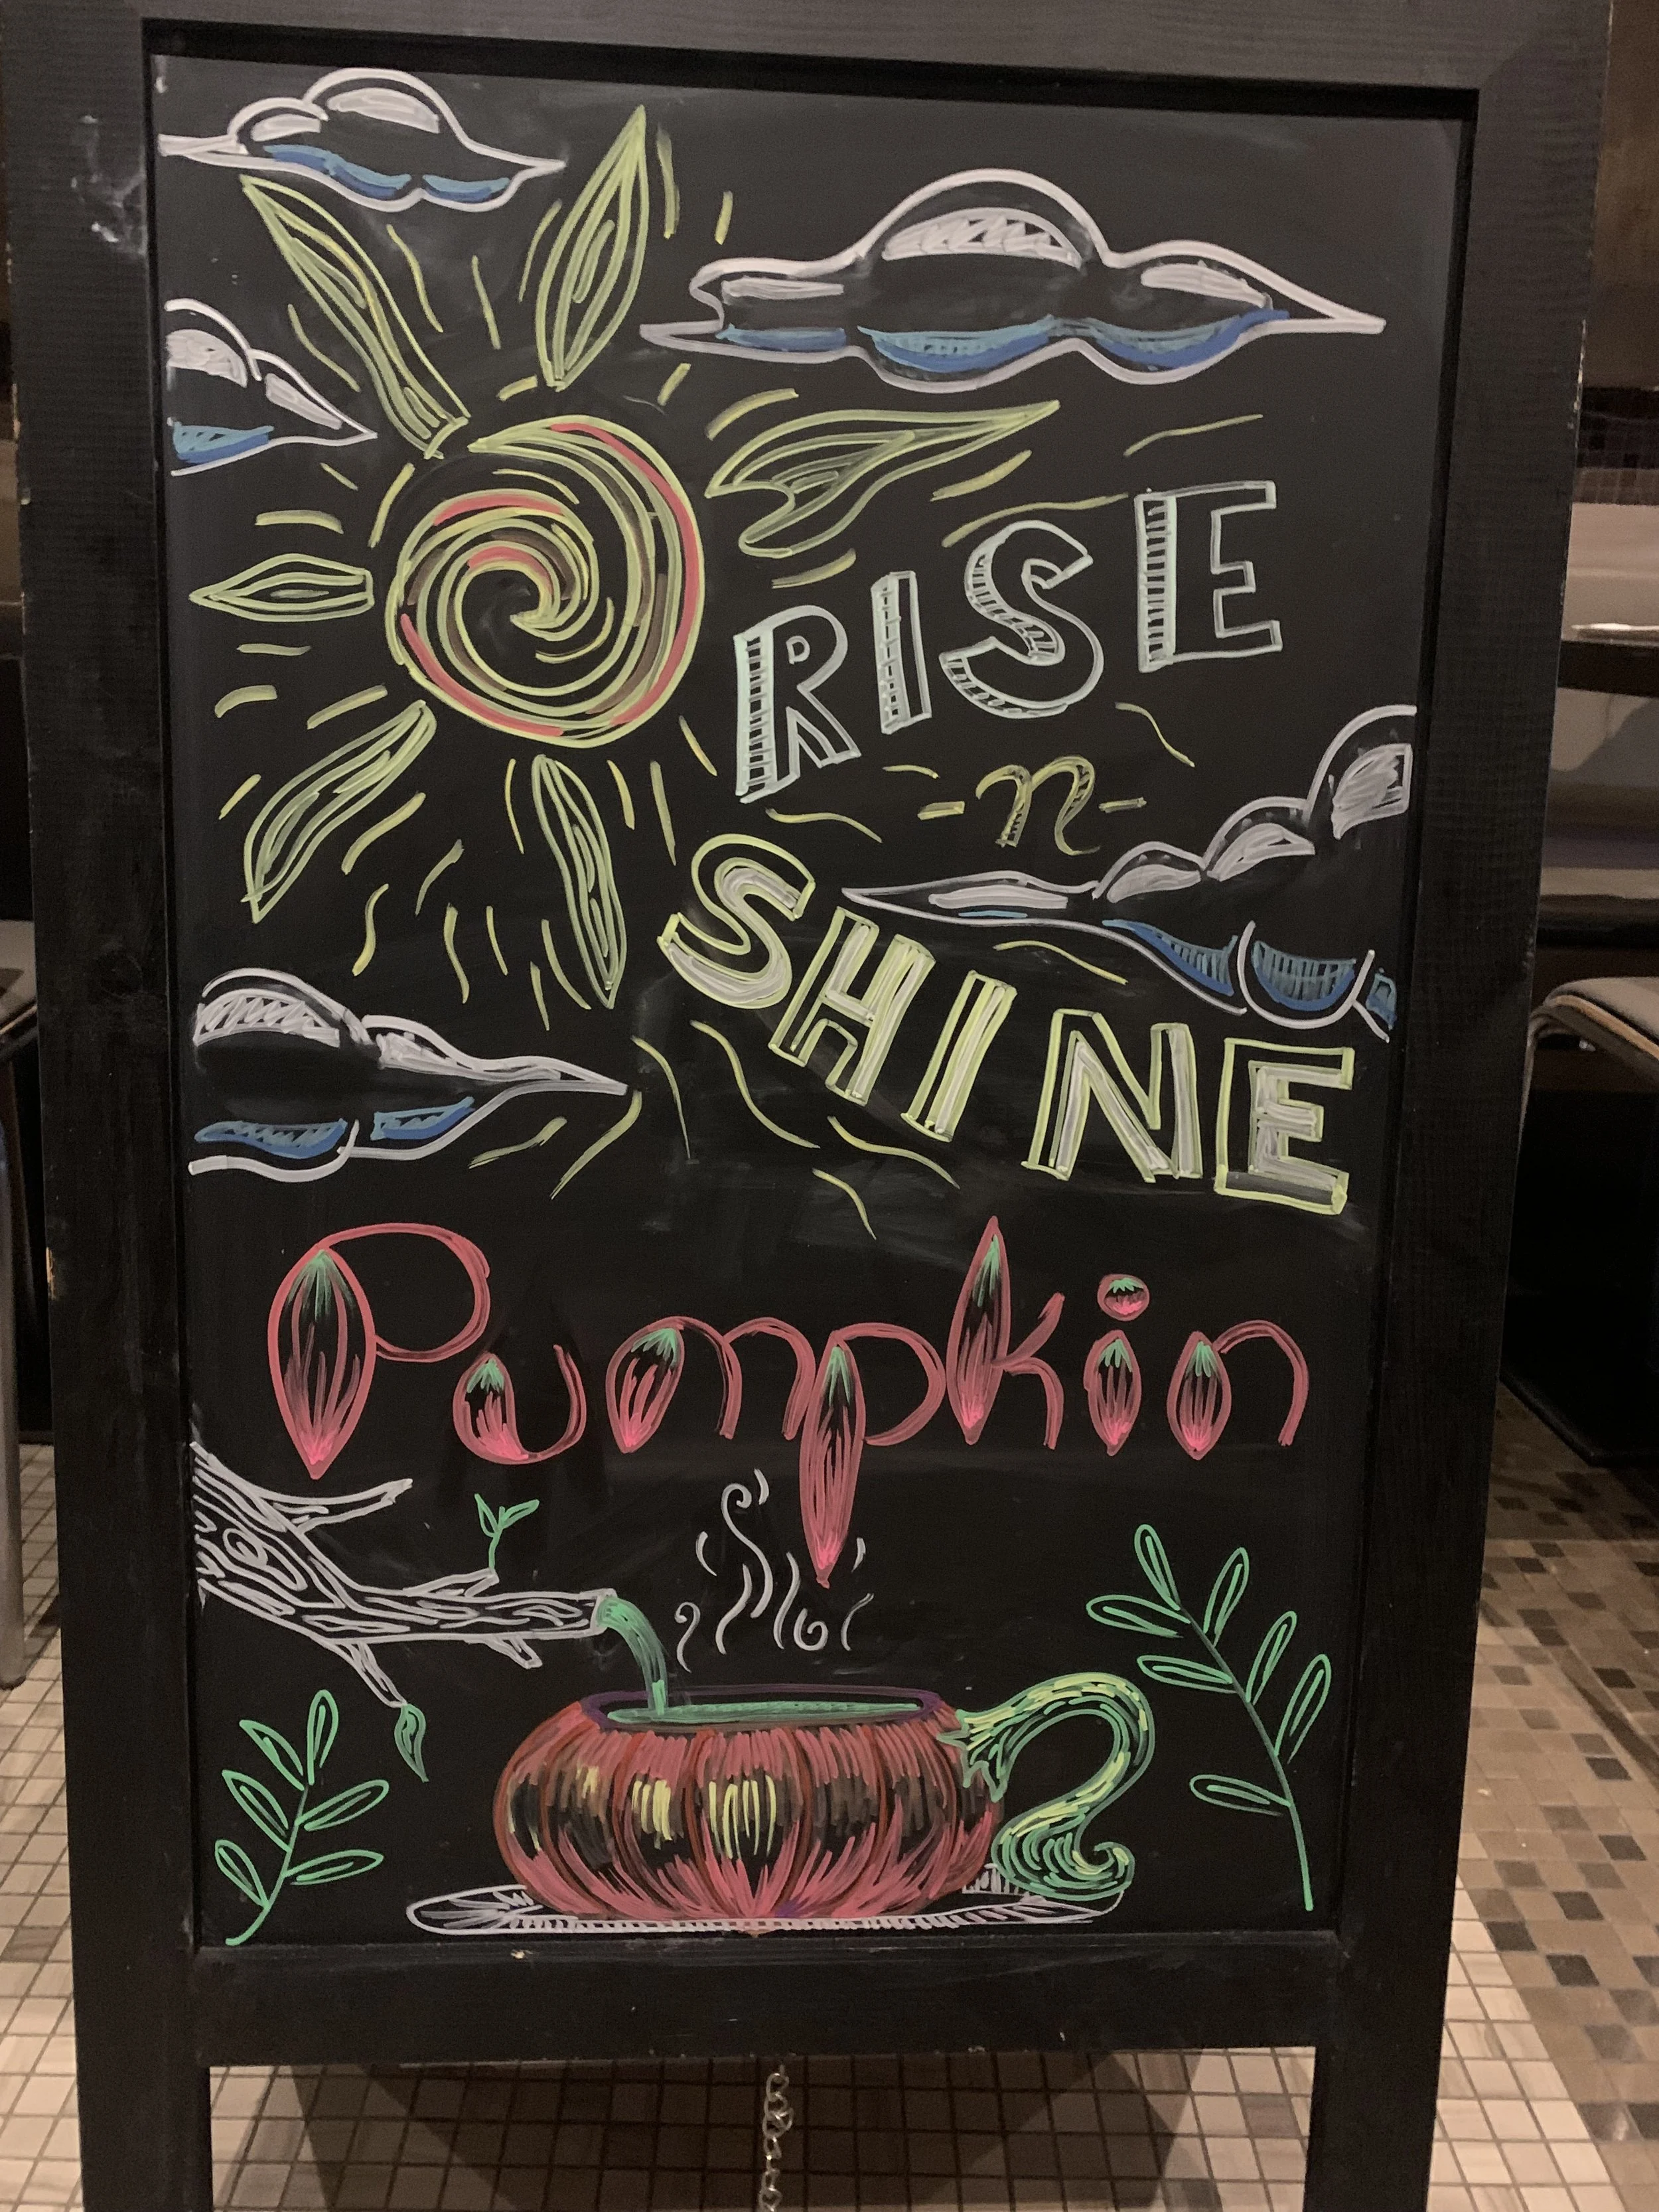 RISE
-n-
SHINE
Pumpkin